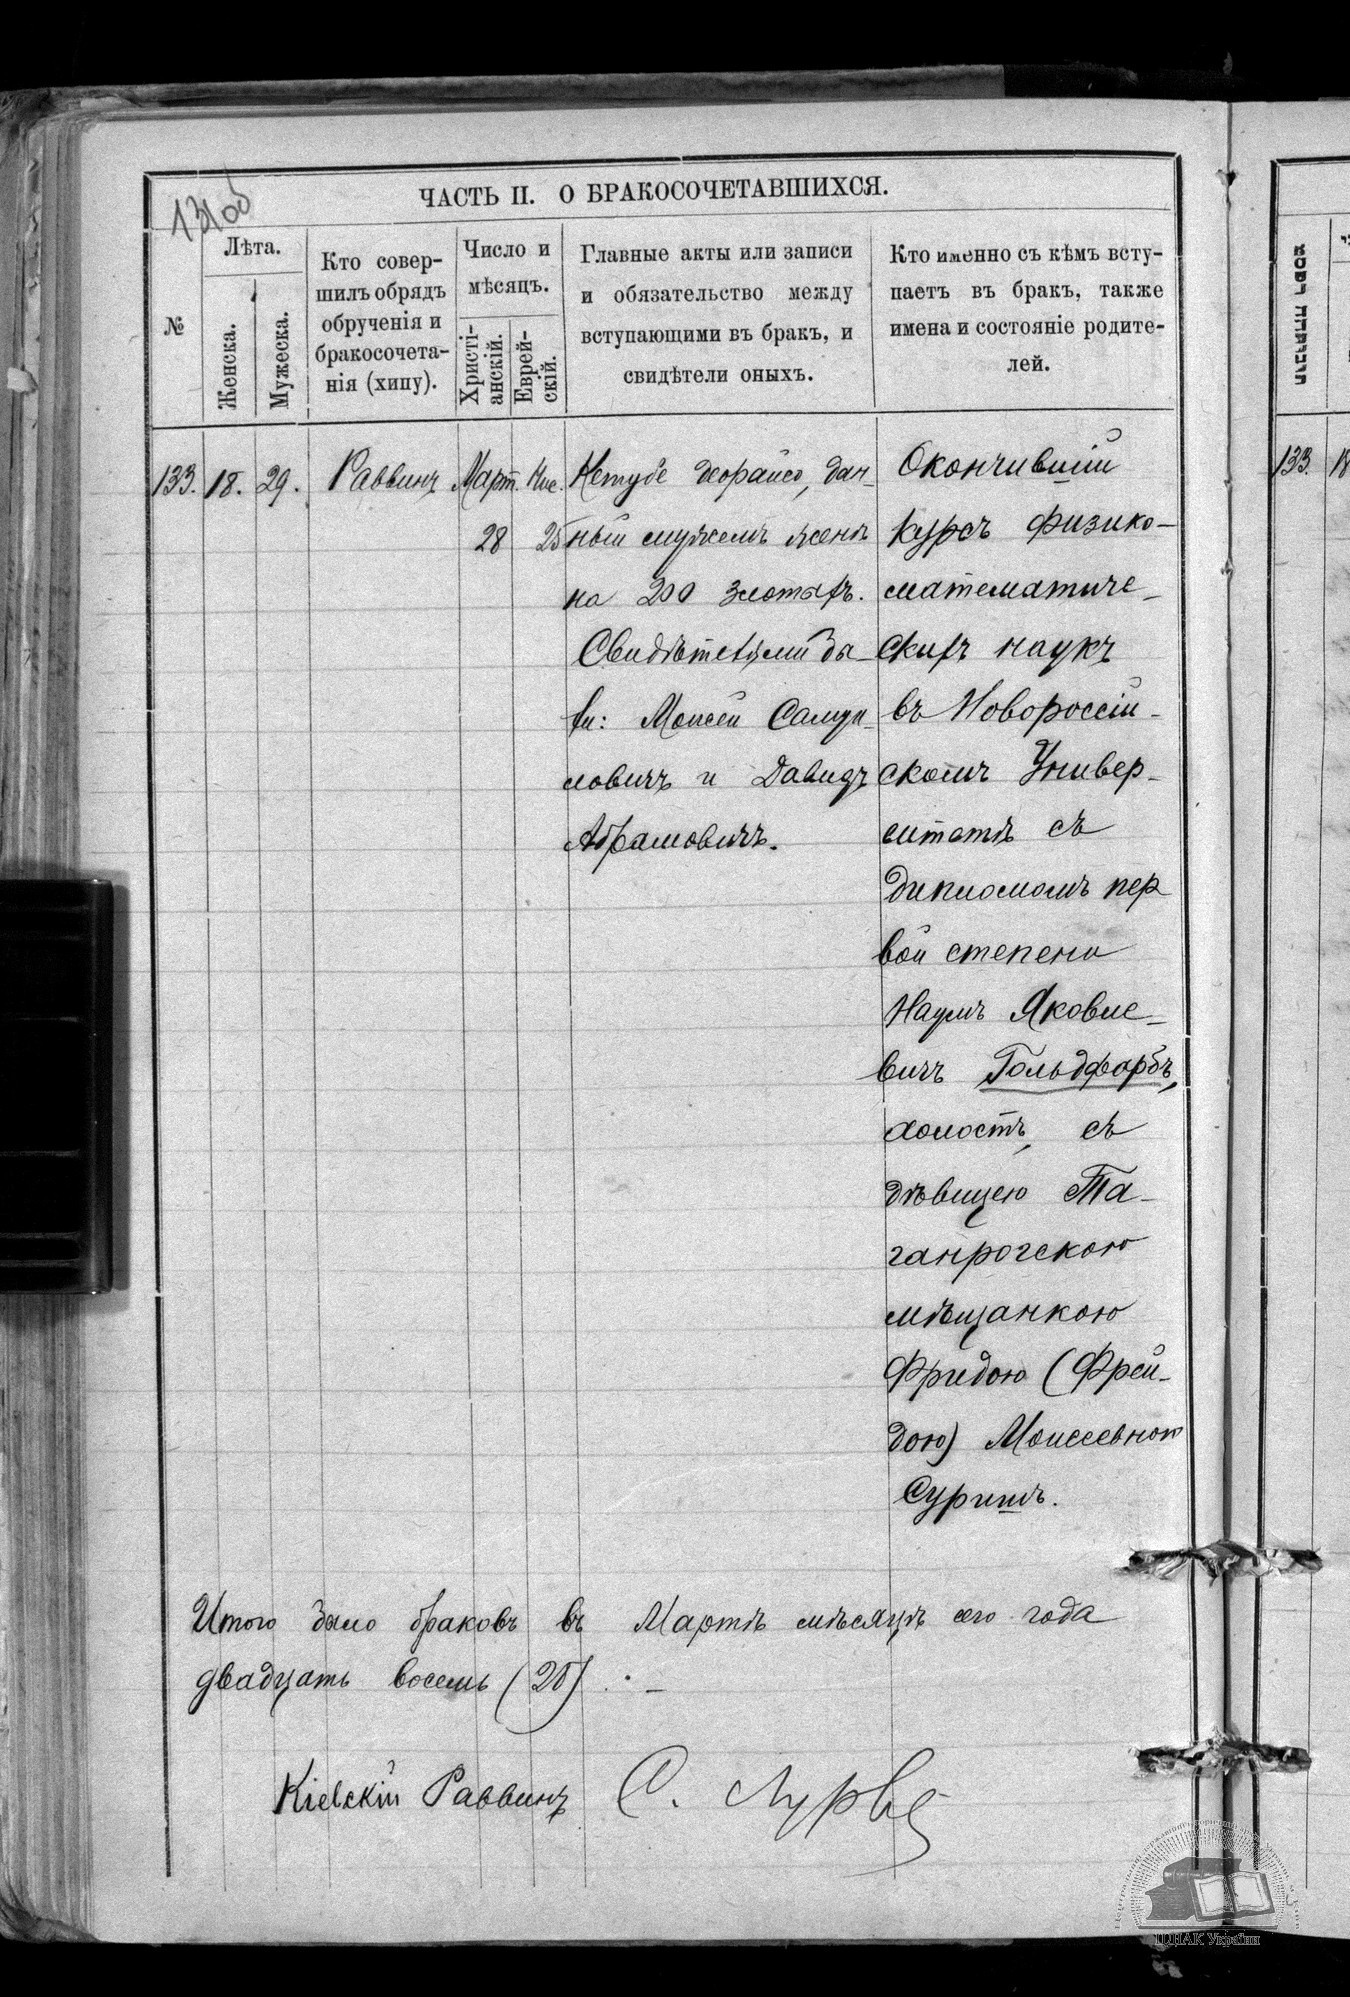 131 об
ЧАСТЬ II. О БРАКОСОЧЕТАВШИХСЯ.
№
Лѣта.
Женска.
Мужеска.
Кто совер-
шилъ обрядъ
обрученія и
бракосочета-
нія (хипу).
Число и
мѣсяцъ.
Христі-
анскій.
Еврей-
скій.
Главные акты или записи
и обязательство между
вступающими въ бракъ, и
свидѣтели оныхъ.
Кто именно съ кѣмъ всту-
паетъ въ бракъ, также
имена и состояніе родите-
лей.
133. 18. 29. Раввинъ Март. Нис.
28 25
Кетубе деорайсо, дан-
ный мужемъ женѣ
на 200 злотыхъ.
Свидѣтелями бы-
ли: Моисей Самуи-
ловичъ и Давидъ
Абрамовичъ.
Окончившій
курсъ физико-
математиче-
скихъ наукъ
въ Новороссій-
скомъ Универ-
ситетѣ съ
дипломомъ пер
вой степени
Наумъ Яковле-
вичъ Гольдфарбъ,
холостъ, съ
дѣвицею Та-
ганрогскою
мѣщанкою
Фридою (Фрей-
дою) Моисеевною
Суришъ.
Итого было браковъ въ Мартѣ мѣсяцѣ сего года
двадцать восемь (28). —
Кіевскій Раввинъ С. Лурье
133. 18
ЦДІАК України